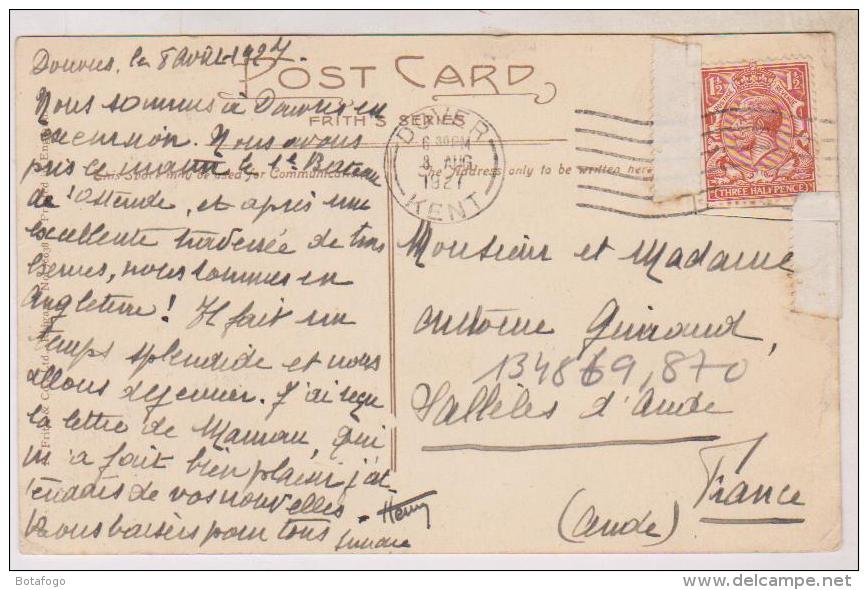 Douvres, le 8 août 1927
POST CARD
FRITH'S SERIES
Nous sommes à Douvres en
excursion. Nous avons
pris ce matin le 1er Bateau
de l'Ostende, et après une
excellente traversée de trois
heures, nous sommes en
Angleterre! Il fait un
temps splendide et nous
allons déjeuner. J'ai reçu
la lettre de Maman, qui
m'a fait bien plaisir j'at
tendais de vos nouvelles
Bons baisers pour tous
Henry
This Space may be used for Communication
The Address only to be written here
DOVER
6.30PM
8 AUG
1927
KENT
1½ 1½
THREE HALFPENCE
Monsieur et Madame
Antoine Guiraud,
134869,870
Sallèles d'Aude
(Aude)
France
Botafogo